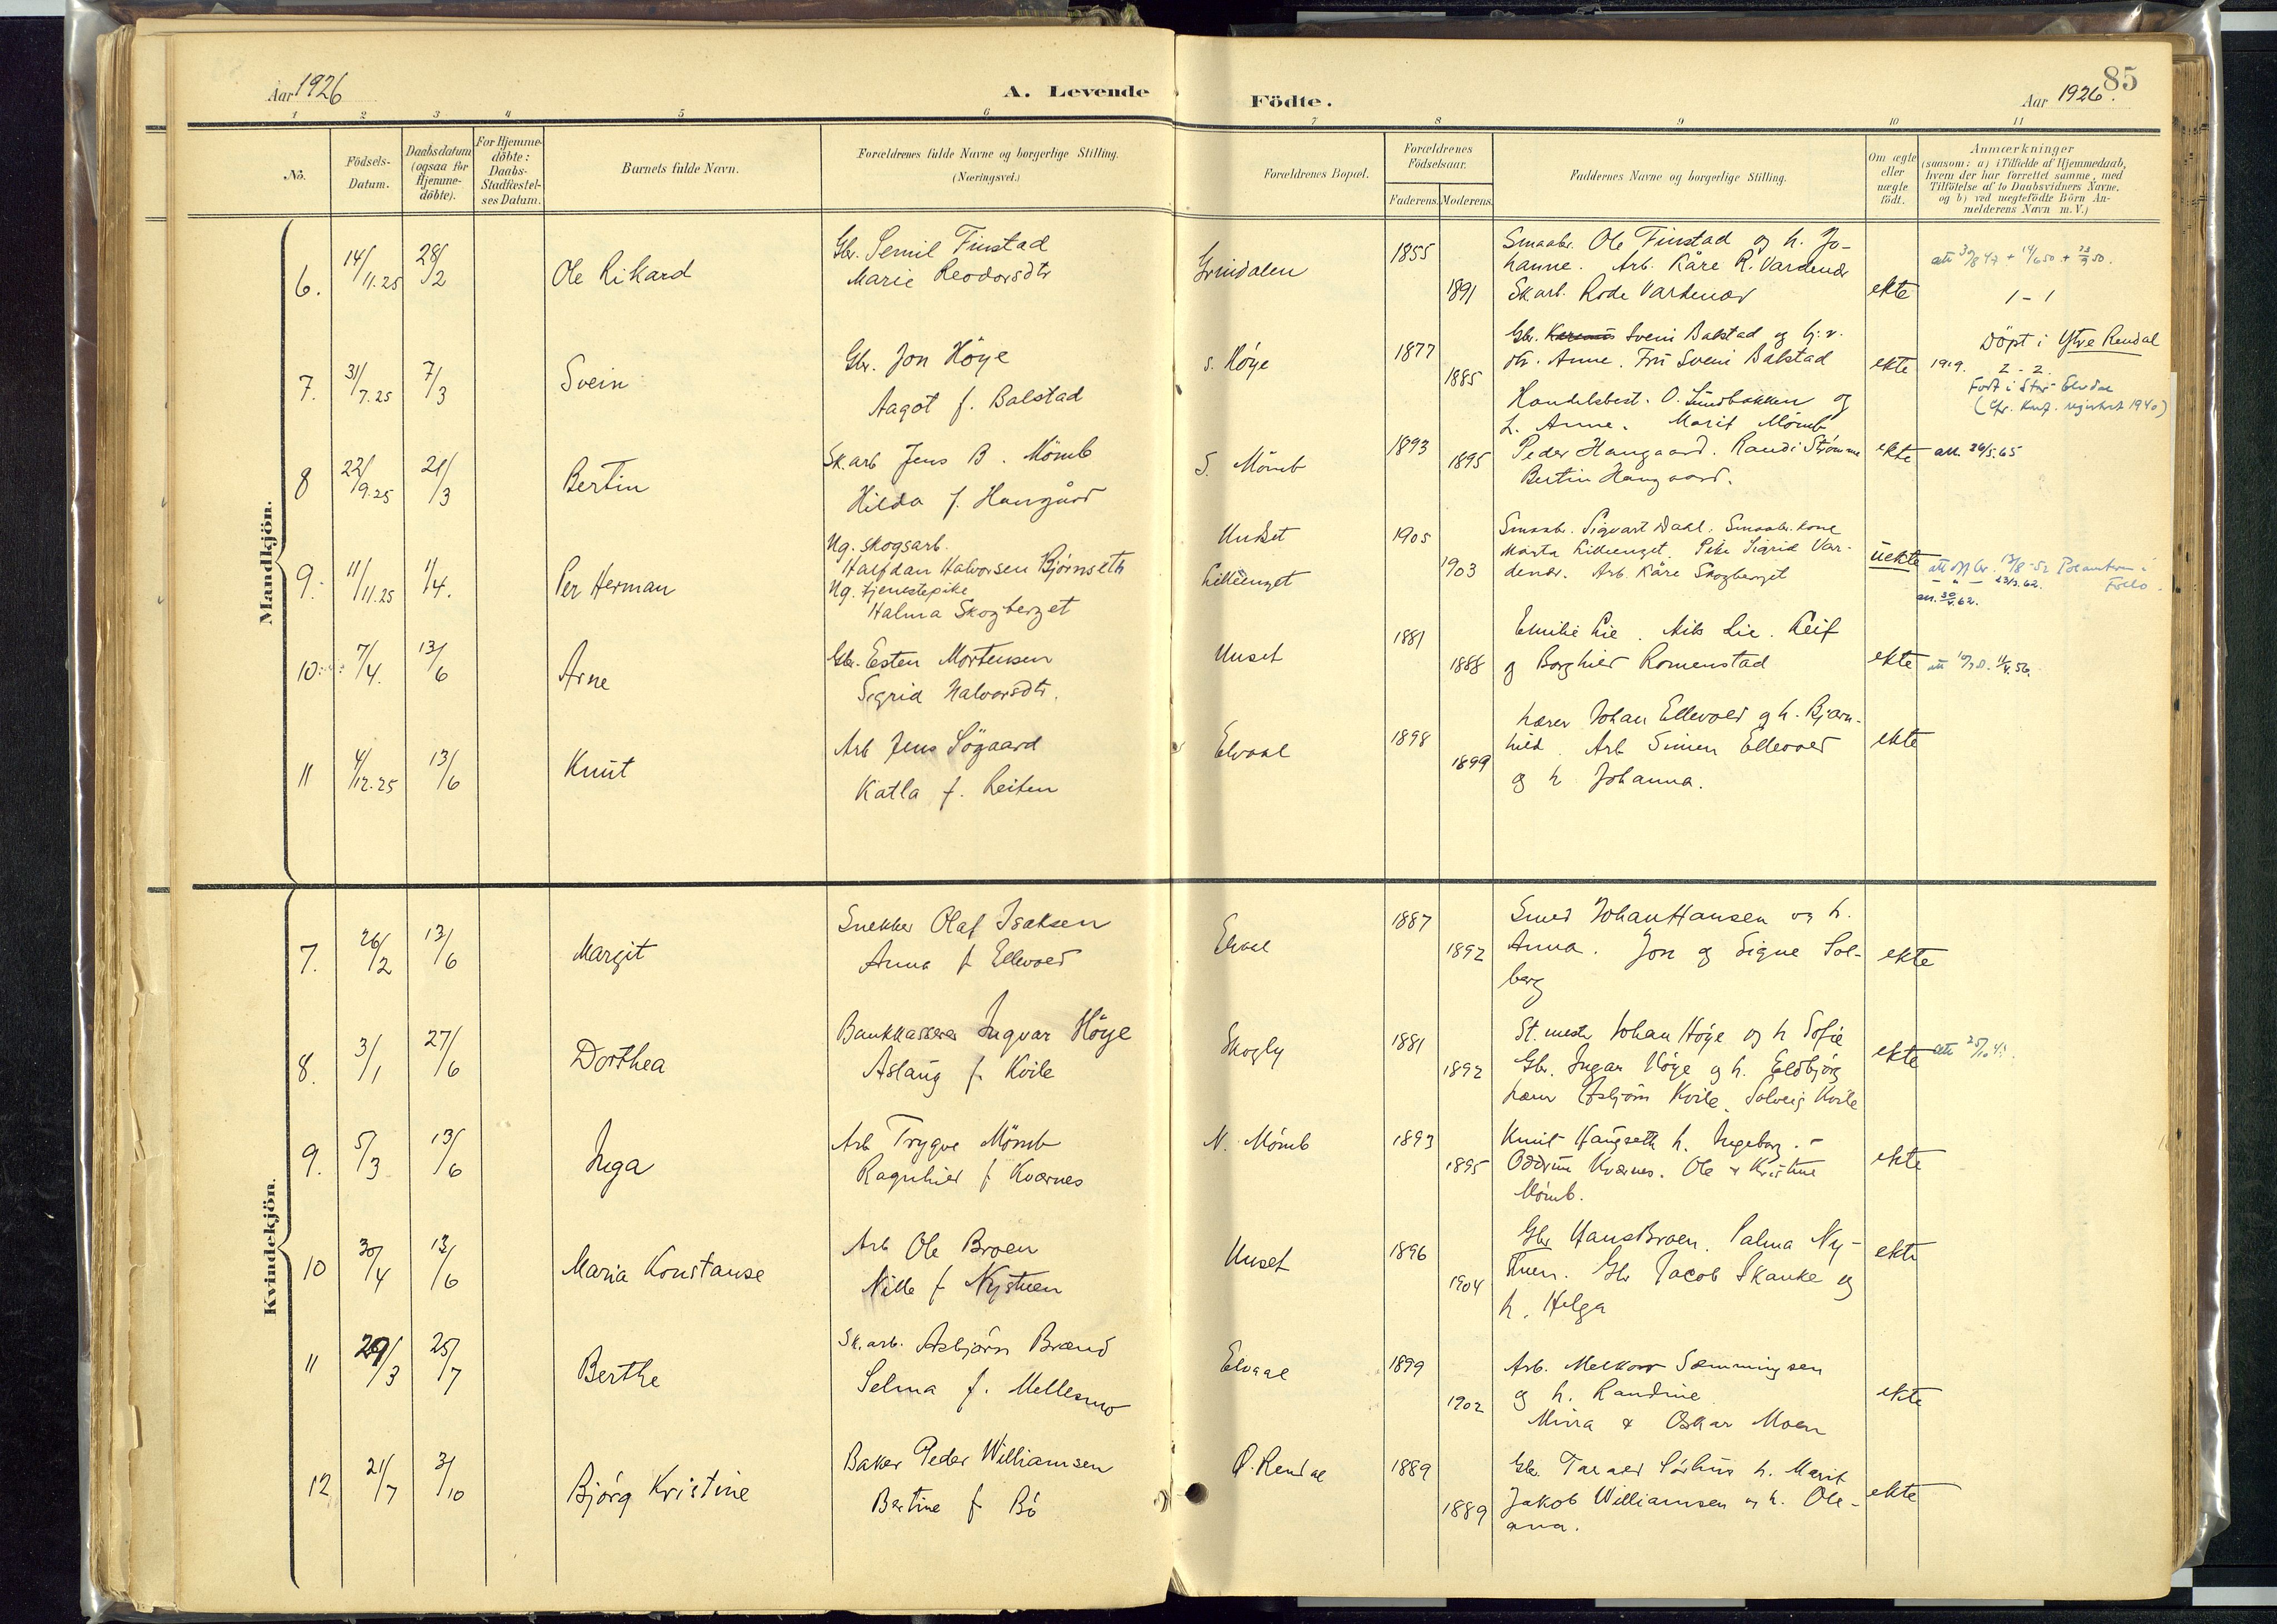 Aar 1926
A. Levende Födte.
85
Aar 1926.
1 2 3 4 5 6 7 8 9 10 11
No.
Födsels-Datum.
Daabsdatum (ogsaa for Hjemme-döbte).
For Hjemme-döbte: Daabs-Stadfæstel-ses Datum.
Barnets fulde Navn.
Forældrenes fulde Navne og borgerlige Stilling. (Næringsvei.)
Forældrenes Bopæl.
Forældrenes Födselsaar.
Faderens. Moderens.
Faddernes Navne og borgerlige Stilling.
Om ægte eller uægte födt.
Anmærkninger
(saasom: a) i Tilfælde af Hjemmedaab,
hvem der har forrettet samme, med
Tilföielse af to Daabsvidners Navne,
og b) ved uægtefödte Börn An-
melderens Navn m. V.)
Mandkjön.
6. 14/11.25 28/2 Ole Rikard
Gbr. Semil Finstad
Marie Reodorsdtr
Grindalen 1855 1891
Smaabr. Ole Finstad og h. Jo-
hanne. Arb. Kåre R. Vardenær
Sk.arb. Rode Vardenær
ekte
1-1
7. 31/7.25 7/3 Svein
Gbr. Jon Höye
Aagot f. Balstad
S. Höye 1877 1885
Gbr. Svein Balstad og
Anne. Fru Svein Balstad
Handelsbest. O. Lundbakken og
h. Anne. Marit Mömb
ekte
Döpt i Ytre Rendal
1919. 2-2.
Født i Stor-Elvdal
8 22/9.25 21/3 Bertin
Sk.arb Jens B. Mömb
Hilda f. Haugård
S. Mömb 1893 1895
Peder Haugaard. Randi Strömme
Bertin Haugaard.
ekte att. 24/5.65
9. 11/11.25 1/4. Per Herman
Ug. skogsarb.
Halfdan Halvorsen Bjørnseth
Ug. tjenestepike
Halma Skogberget
Undset
Lilleenget 1905 1903
Smaabr. Sigvart Dahl. Smaabr. kone
Marta Lilleenget. Pike Sigrid Var-
denær. Arb. Kåre Skogberget
uekte
10. 7/4. 13/6 Arne
Gbr. Esten Mortensen
Sigrid Halvorsdtr.
Unset 1881 1888
Emilie Lie. Nils Lie. Leif
og Borghild Romenstad
ekte
11 4/12.25 13/6 Knut
Arb Jens Sögaard
Katla f. Reiten
Elvaal 1898 1899
Lærer Johan Ellevold og h. Bjarn-
hild. Arb Simen Ellevold
og h Johanna.
ekte
Kvindekjön.
7. 26/2 13/6 Margit
Snekker Olaf Isaksen
Anna f Ellevold
Elvaal 1887 1892
Smed Johan Hansen og h.
Anna. Jon og Signe Sol-
berg
ekte
8. 3/1 27/6 Dorthea
Bankkasserer Ingvar Höye
Aslaug f. Kvile
Skogly 1881 1892
St.mestr Johan Höye og h Sofie
Gbr. Ingar Höye og h. Eldbjörg
Lærer Asbjörn Kvile. Solveig Kvile
ekte
9. 5/3 13/6 Inga
Arb Trygve Mömb
Ragnhild f Kværnes
N. Mömb 1893 1895
Knut Haugseth h. Ingeborg. -
Oddrun Kværnes. Ole & Kristine
Mömb.
ekte
10 30/4 13/6 Maria Konstanse
Arb Ole Broen
Nille f Nystuen
Unset 1896 1904
Gbr Hans Broen. Palma Ny-
stuen. Gbr Jacob Skanke og
h. Helga
ekte
11 29/3 25/7 Berthe
Sk.arb. Asbjörn Brænd
Selma f. Mellesmo
Elvaal 1899 1902
Arb. Melkior Sæmmingsen
og h. Randine
Mina & Oskar Moen
ekte
12 21/7 3/10 Björg Kristine
Baker Peder Williamsen
Bertine f Bö
Ö. Rendal 1889 1889
Gbr. Tarald Sörhus h. Marit
Jakob Williamsen og h. Ole-
ana.
ekte